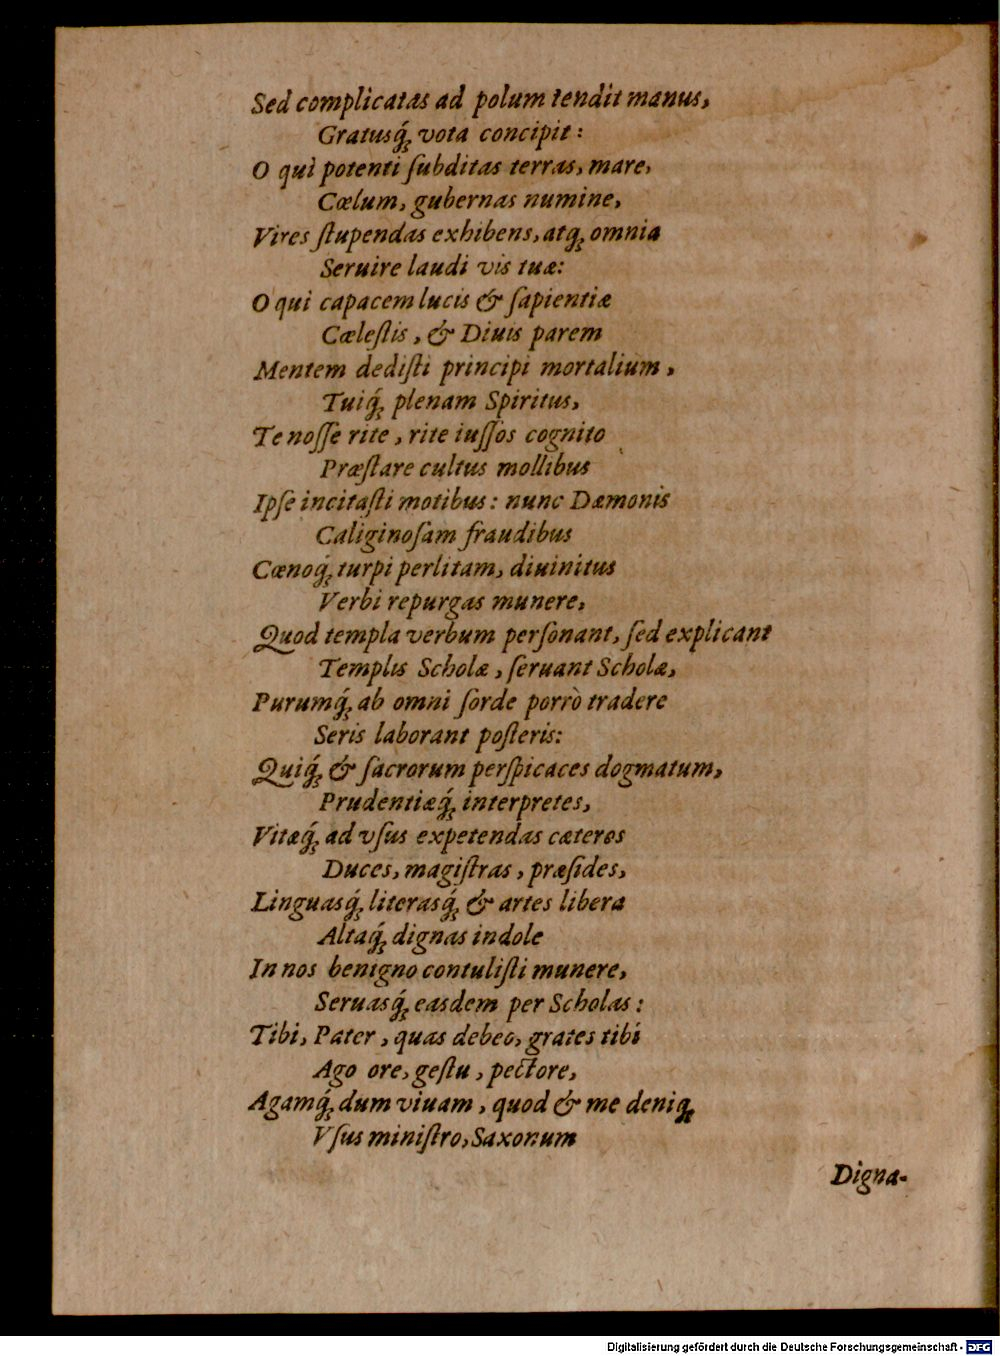 Sed complicatas ad polum tendit manus,
Gratusq́ꝫ vota concipit:
O quì potenti ſubditas terras, mare,
Cœlum, gubernas numine,
Vires ſtupendas exhibens, atqꝫ omnia
Seruire laudi vis tuæ:
O qui capacem lucis & ſapientiæ
Cæleſtis, & Diuis parem
Mentem dediſti principi mortalium,
Tuiq́ꝫ plenam Spiritus,
Te noſſe rite, rite iuſſos cognito
Præſtare cultus mollibus
Ipſe incitaſti motibus: nunc Dæmonis
Caliginoſam fraudibus
Cœnoq́ꝫ turpi perlitam, diuinitus
Verbi repurgas munere,
Quod templa verbum perſonant, ſed explicant
Templis Scholæ, ſeruant Scholæ,
Purumq́ꝫ ab omni ſorde porrò tradere
Seris laborant poſteris:
Quiq́ꝫ & ſacrorum perſpicaces dogmatum,
Prudentiæq́ꝫ interpretes,
Vitæq́ꝫ ad vſus expetendas cæteros
Duces, magiſtras, præſides,
Linguasq́ꝫ literasq́ꝫ & artes libera
Altaq́ꝫ dignas indole
In nos benigno contuliſti munere,
Seruasq́ꝫ easdem per Scholas:
Tibi, Pater, quas debeo, grates tibi
Ago ore, geſtu, pectore,
Agamq́ꝫ dum viuam, quod & me deniqꝫ
Vſus miniſtro, Saxonum
Digna-
Digitalisierung gefördert durch die Deutsche Forschungsgemeinschaft - DFG